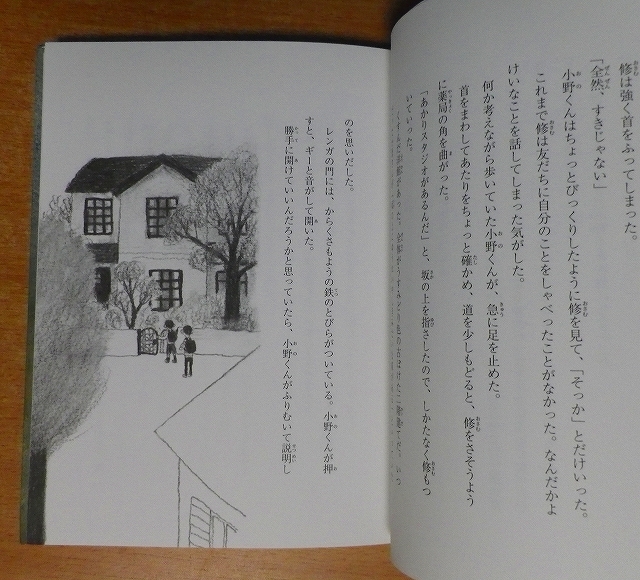 修は強く首をふってしまった。
「全然、すきじゃない」
小野くんはちょっとびっくりしたように修を見て、「そっか」とだけいった。
これまで修は友だちに自分のことをしゃべったことがなかった。なんだかよ
けいなことを話してしまった気がした。
何か考えながら歩いていた小野くんが、急に足を止めた。
首をまわしてあたりをちょっと確かめ、道を少しもどると、修をさそうよう
に薬局の角を曲がった。
「あかりスタジオがあるんだ」と、坂の上を指さしたので、しかたなく修もつ
いていった。
のを思いだした。
レンガの門には、からくさもようの鉄のとびらがついている。小野くんが押
すと、ギーと音がして開いた。
勝手に開けていいんだろうかと思っていたら、小野くんがふりむいて説明し